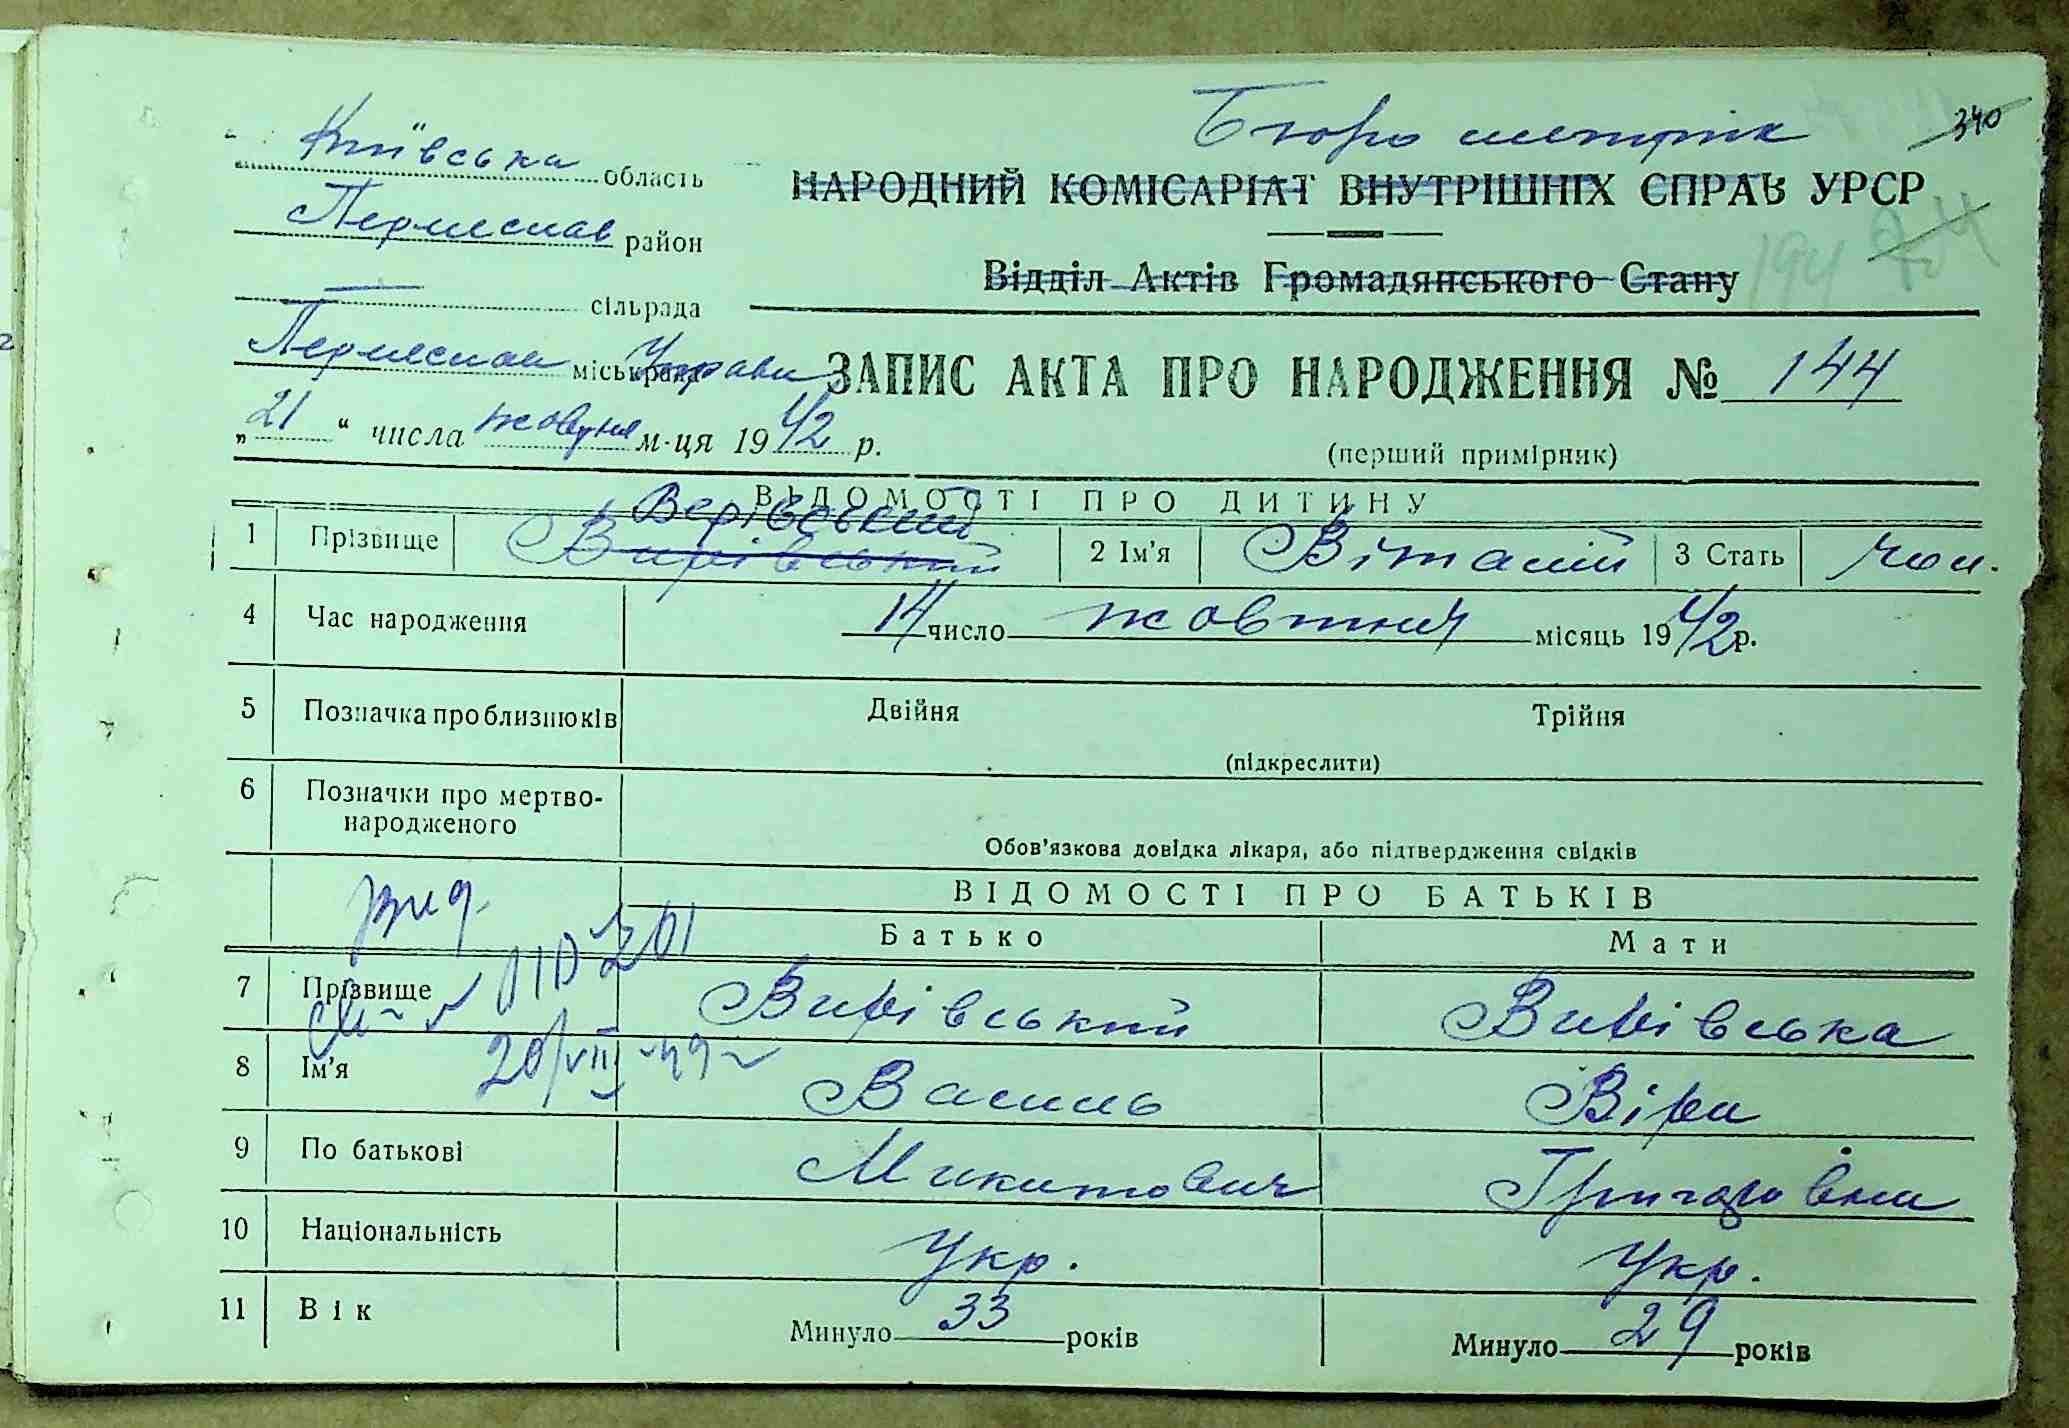 Бюро метрик
340
Київська область
НАРОДНИЙ КОМІСАРІАТ ВНУТРІШНІХ СПРАВ УРСР
Переяслав район
194
Відділ Актів Громадянського Стану
сільрада
Переяслав міськрада Управи
ЗАПИС АКТА ПРО НАРОДЖЕННЯ № 144
„21“ числа жовтня м-ця 1942 р.
(перший примірник)
ВІДОМОСТІ ПРО ДИТИНУ
Верівський
1 Прізвище Вирівський 2 Ім'я Віталій 3 Стать чол.
4 Час народження 14 число жовтня місяць 1942 р.
5 Позначка про близнюків Двійня Трійня
(підкреслити)
6 Позначки про мертво-
народженого
Обов'язкова довідка лікаря, або підтвердження свідків
ВІДОМОСТІ ПРО БАТЬКІВ
Батько Мати
7 Прізвище Вирівський Вирівська
20/VIII-49
8 Ім'я Василь Віра
9 По батькові Микитович Григорівна
10 Національність Укр. Укр.
11 Вік Минуло 33 років Минуло 29 років